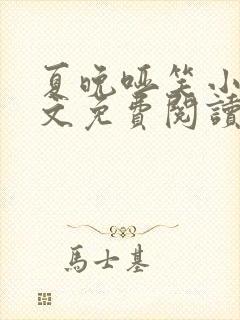 夏晚哑笑小
文免費閱讀
馬士基